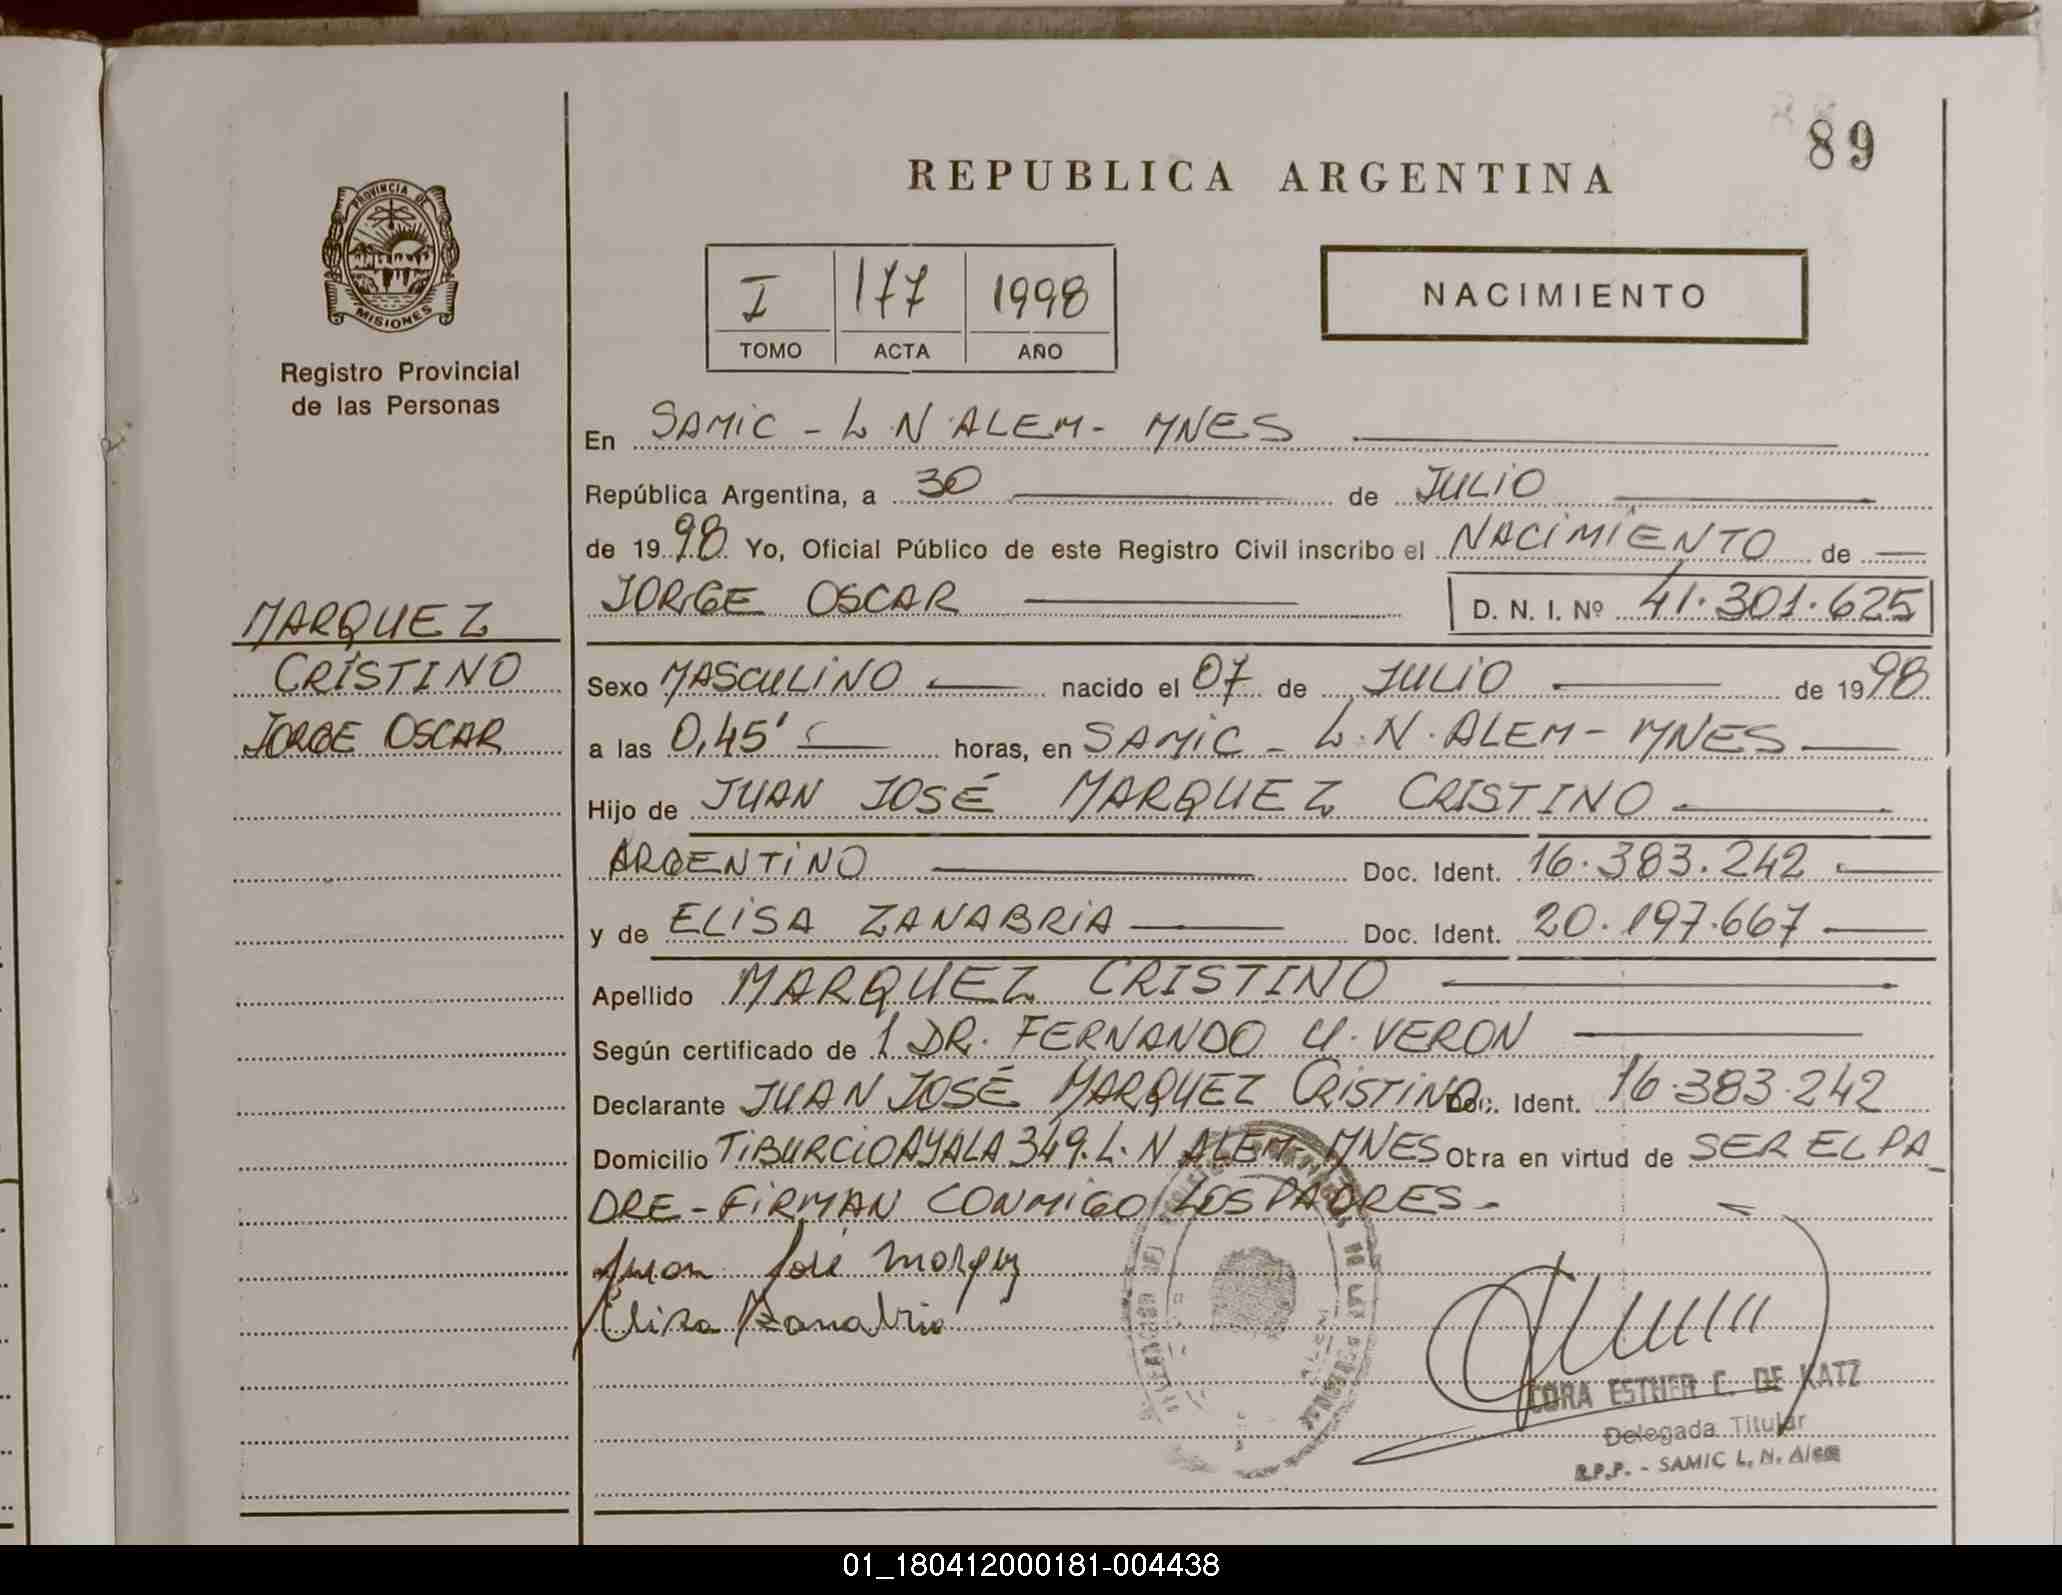 89
REPUBLICA ARGENTINA
PROVINCIA DE
MISIONES
Registro Provincial
de las Personas
I 177 1998
TOMO ACTA AÑO
NACIMIENTO
MARQUEZ
CRISTINO
JORGE OSCAR
En SAMIC - L.N.ALEM - MNES
República Argentina, a 30 de JULIO
de 1998 Yo, Oficial Público de este Registro Civil inscribo el NACIMIENTO de
JORGE OSCAR D. N. I. Nº 41.301.625
Sexo MASCULINO nacido el 07 de JULIO de 1998
a las 0,45' horas, en SAMIC - L.N.ALEM - MNES
Hijo de JUAN JOSÉ MARQUEZ CRISTINO
ARGENTINO Doc. Ident. 16.383.242
y de ELISA ZANABRIA Doc. Ident. 20.197.667
Apellido MARQUEZ CRISTINO
Según certificado de 1 DR. FERNANDO U. VERON
Declarante JUAN JOSÉ MARQUEZ CRISTINO Doc. Ident. 16.383.242
Domicilio TIBURCIO AYALA 349. L.N ALEM - MNES Obra en virtud de SER EL PA_
DRE - FIRMAN CONMIGO LOS PADRES -
Juan José Marquez
Elisa Zanabria
CORA ESTHER C. DE KATZ
Delegada Titular
R.P.P. - SAMIC L. N. Alem
01_180412000181-004438